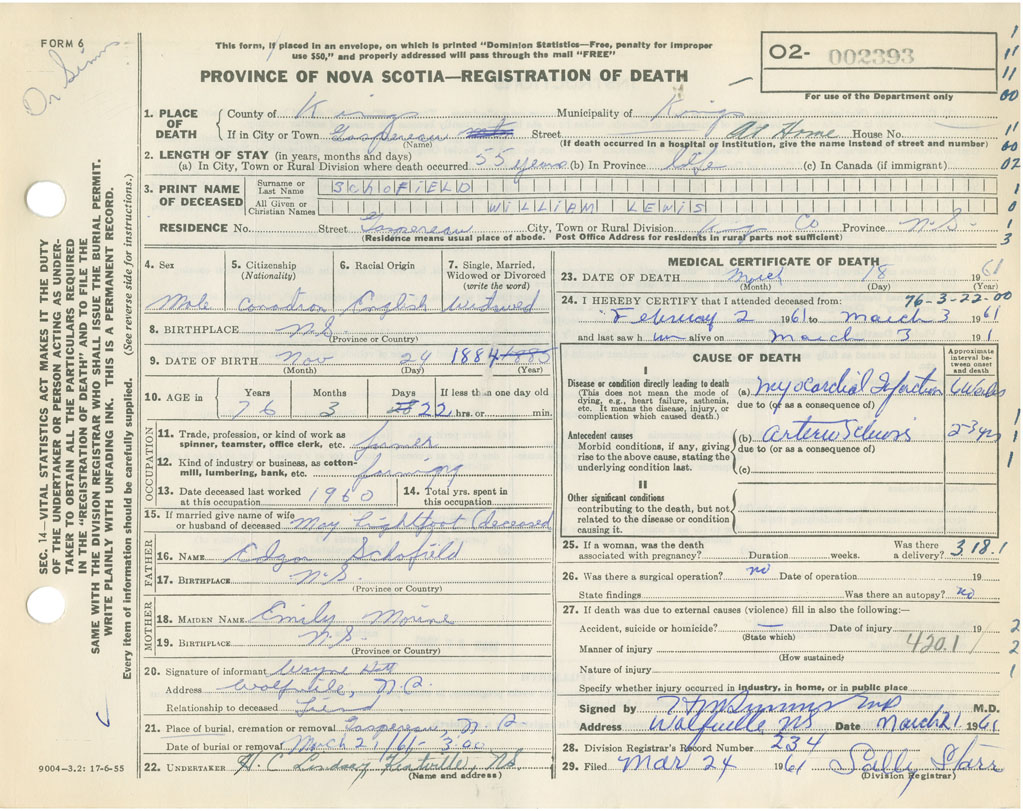 FORM 6
Dr Simms
This form, if placed in an envelope, on which is printed "Dominion Statistics—Free, penalty for improper
use $50," and properly addressed will pass through the mail "FREE"
PROVINCE OF NOVA SCOTIA—REGISTRATION OF DEATH
02- 002393
For use of the Department only
1. PLACE OF DEATH
County of Kings Municipality of Kings
If in City or Town Gaspereau Street At Home House No.
(Name) (If death occurred in a hospital or institution, give the name instead of street and number)
2. LENGTH OF STAY (in years, months and days)
(a) In City, Town or Rural Division where death occurred 55 years (b) In Province life (c) In Canada (if immigrant)
3. PRINT NAME OF DECEASED
Surname or Last Name SCHOFIELD
All Given or Christian Names WILLIAM LEWIS
RESIDENCE No. Street Gaspereau City, Town or Rural Division Kings Co Province N.S.
(Residence means usual place of abode. Post Office Address for residents in rural parts not sufficient)
4. Sex
Male
5. Citizenship (Nationality)
Canadian
6. Racial Origin
English
7. Single, Married, Widowed or Divorced (write the word)
Widowed
8. BIRTHPLACE N.S.
(Province or Country)
9. DATE OF BIRTH Nov 24 1884 1885
(Month) (Day) (Year)
10. AGE in Years Months Days If less than one day old
76 3 22 hrs. or min.
OCCUPATION
11. Trade, profession, or kind of work as spinner, teamster, office clerk, etc. farmer
12. Kind of industry or business, as cotton-mill, lumbering, bank, etc. farming
13. Date deceased last worked at this occupation 1960
14. Total yrs. spent in this occupation
15. If married give name of wife or husband of deceased May Lightfoot (deceased
FATHER
16. NAME Edgar Schofield
17. BIRTHPLACE N.S.
(Province or Country)
MOTHER
18. MAIDEN NAME Emily
19. BIRTHPLACE N.S.
(Province or Country)
20. Signature of informant Wayne
Address Wolfville, N.S.
Relationship to deceased Friend
21. Place of burial, cremation or removal Gaspereau, N.S.
Date of burial or removal March 21/61- 3.00
22. UNDERTAKER H. C Lindsay Kentville, N.S.
(Name and address)
9004-3.2: 17-6-55
MEDICAL CERTIFICATE OF DEATH
23. DATE OF DEATH March 18 1961
(Month) (Day) (Year)
24. I HEREBY CERTIFY that I attended deceased from: 76-3-22-00
February 2 1961 to March 3 1961
and last saw him alive on March 3 1961
CAUSE OF DEATH
Approximate interval between onset and death
I
Disease or condition directly leading to death
(This does not mean the mode of dying, e.g., heart failure, asthenia, etc. It means the disease, injury, or complication which caused death.)
(a) Myocardial Infarction 6 weeks
due to (or as a consequence of)
Antecedent causes
Morbid conditions, if any, giving rise to the above cause, stating the underlying condition last.
(b) Arteriosclerosis 2-3 yrs
due to (or as a consequence of)
(c)
II
Other significant conditions
contributing to the death, but not related to the disease or condition causing it.
25. If a woman, was the death associated with pregnancy? Duration weeks. Was there a delivery? 318.1
26. Was there a surgical operation? no Date of operation 19
State findings Was there an autopsy? no
27. If death was due to external causes (violence) fill in also the following:—
Accident, suicide or homicide? — Date of injury 19
(State which)
Manner of injury 420.1
(How sustained)
Nature of injury
Specify whether injury occurred in industry, in home, or in public place
Signed by M.D.
Address Wolfville NS Date March 21 1961
28. Division Registrar's Record Number 234
29. Filed Mar 24 1961 Sally Starr
(Division Registrar)
SEC. 14—VITAL STATISTICS ACT MAKES IT THE DUTY
OF THE UNDERTAKER OR PERSON ACTING AS UNDER-
TAKER TO OBTAIN ALL THE PARTICULARS REQUIRED
IN THE "REGISTRATION OF DEATH" AND TO FILE THE
SAME WITH THE DIVISION REGISTRAR WHO SHALL ISSUE THE BURIAL PERMIT.
WRITE PLAINLY WITH UNFADING INK. THIS IS A PERMANENT RECORD.
Every item of information should be carefully supplied. (See reverse side for instructions.)